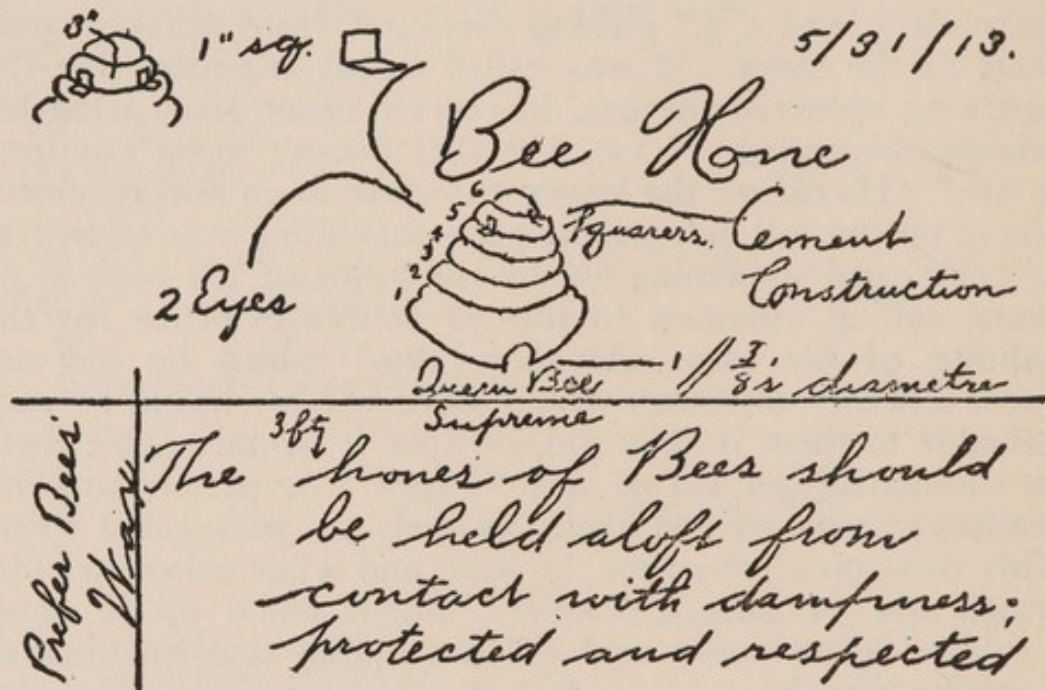 3"
1" sq.
5/31/13.
Bee Hone
6
5
4
3
2
1
Squarers.
Cement
Construction
2 Eyes
1" 7/8's diametre
Queen Bee
Supreme
Prefer Bees'
Wax
3 ft
The hones of Bees should
be held aloft from
contact with dampness;
protected and respected